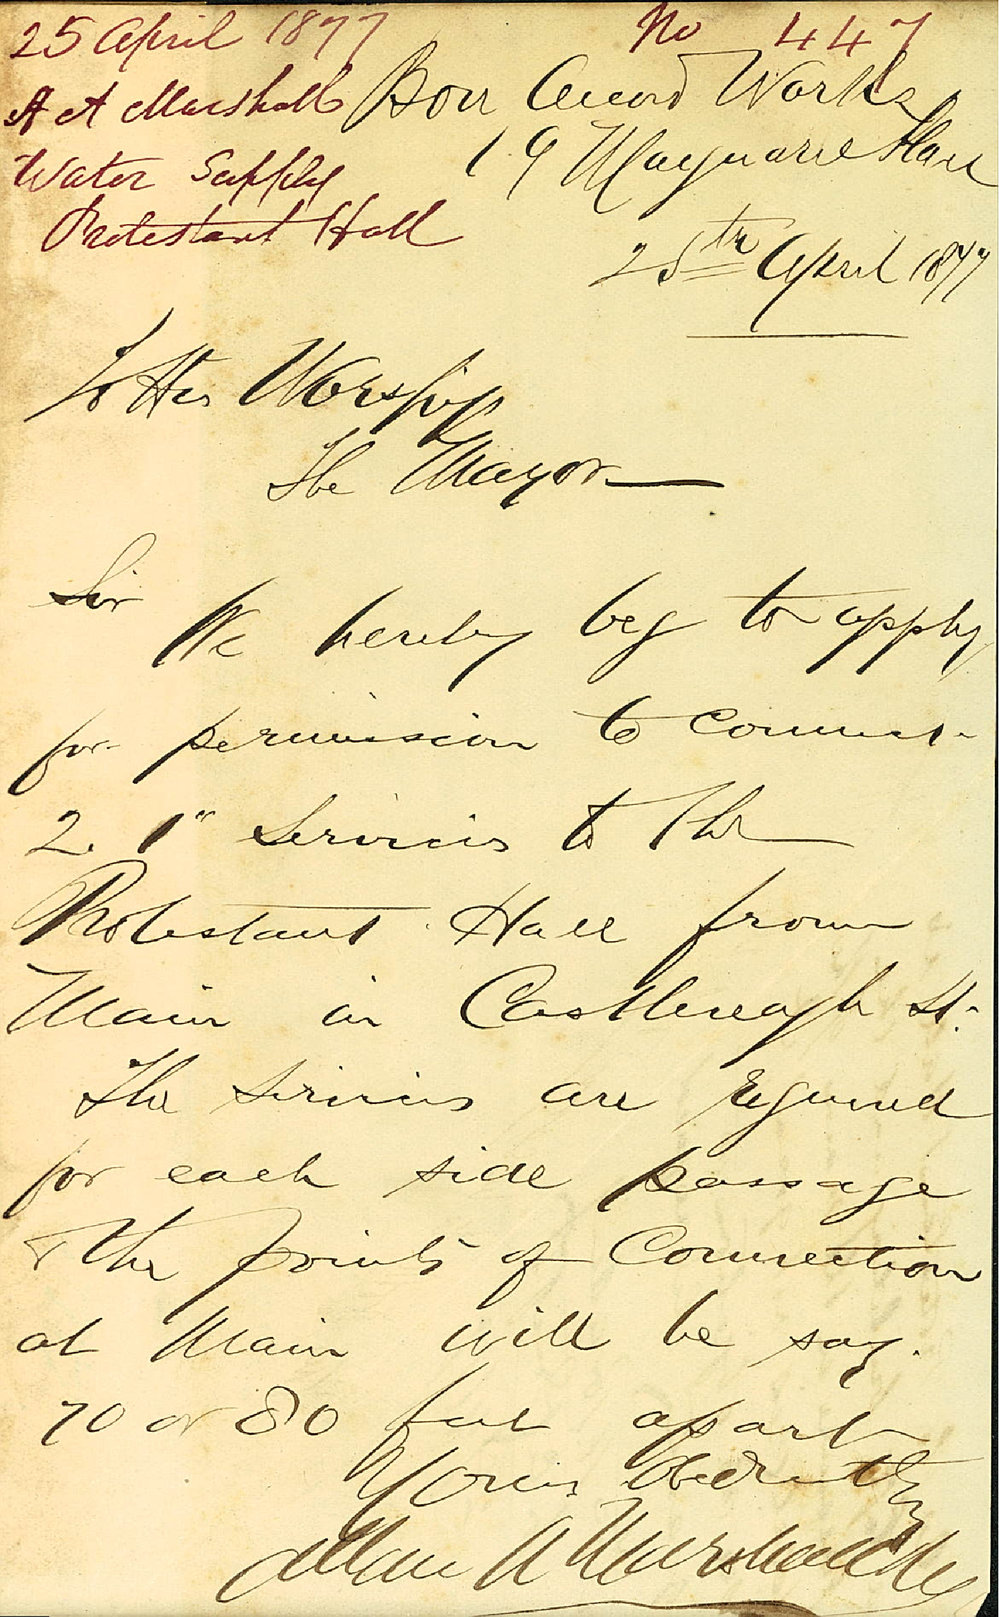 25 April 1877
No 447
A A Marshall
Water Supply
Protestant Hall
Bon Accord Works
19 Macquarie Place
25th April 1877
To His Worship
The Mayor
Sir
We hereby beg to apply
for permission to connect
2. 1" Services to the
Protestant Hall from
Main in Castlereagh St.
The services are required
for each side passage
& the points of Connection
at Main will be say.
70 or 80 feet apart
Yours Obediently
Allan A Marshall